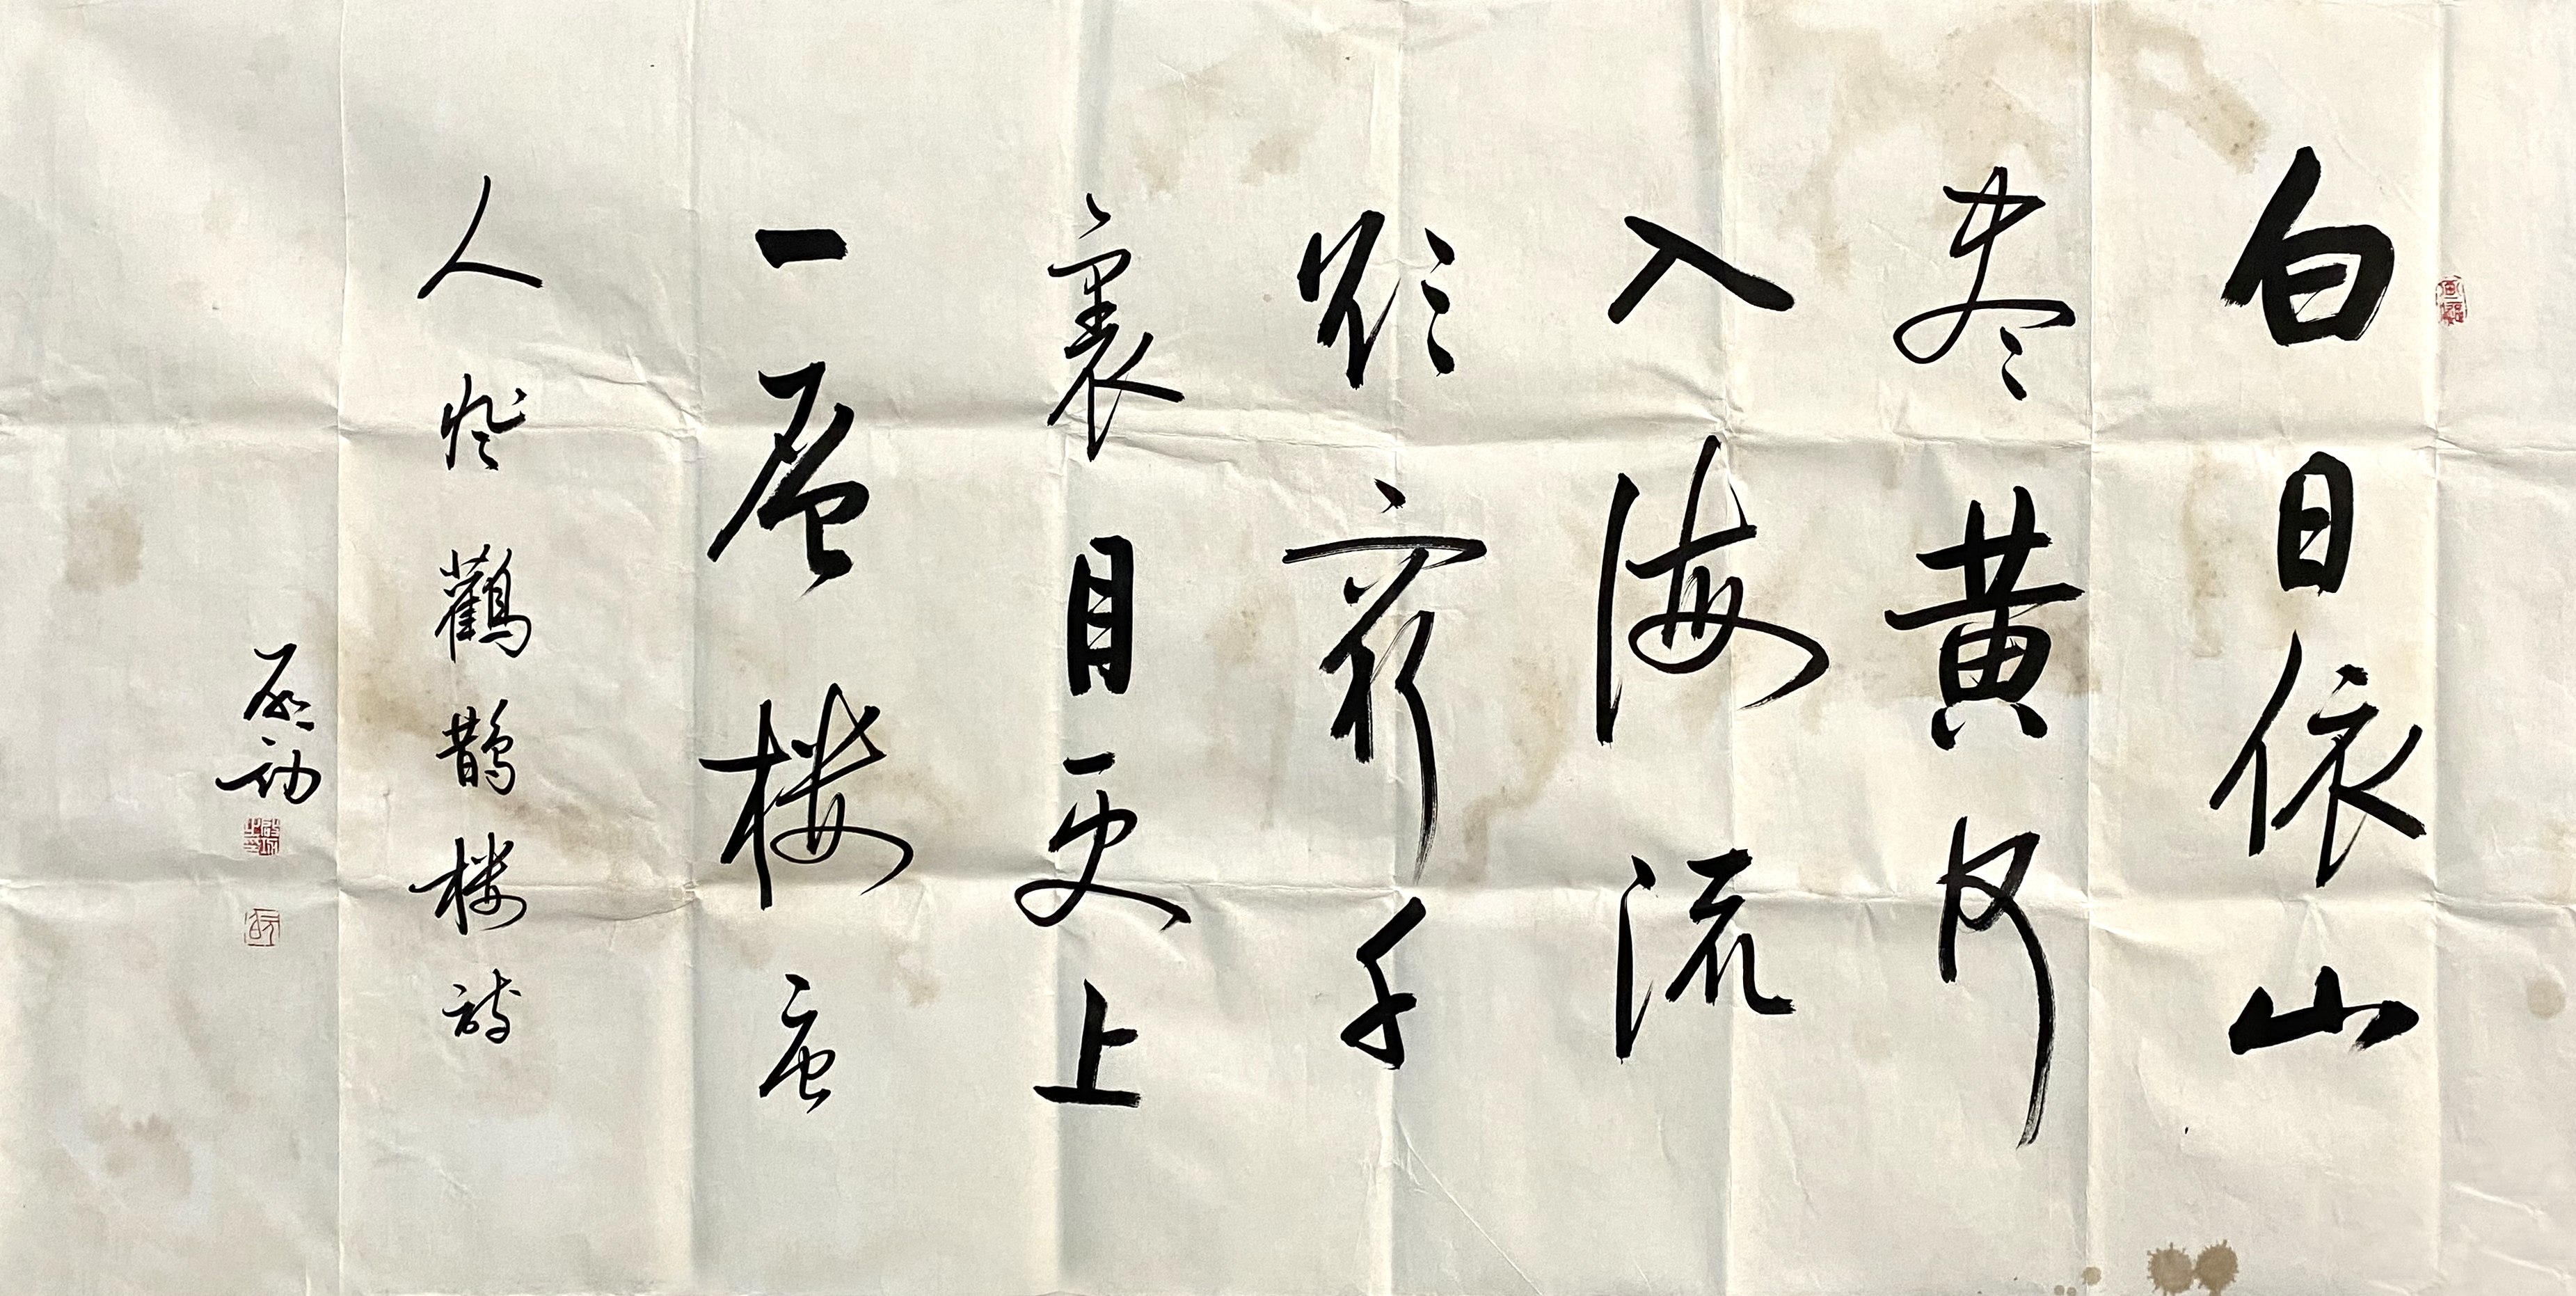 白日依山
盡黄河
入海流
欲窮千
裏目更上
一層樓唐
人登鸛鵲樓詩
启功
啟功之印
元白